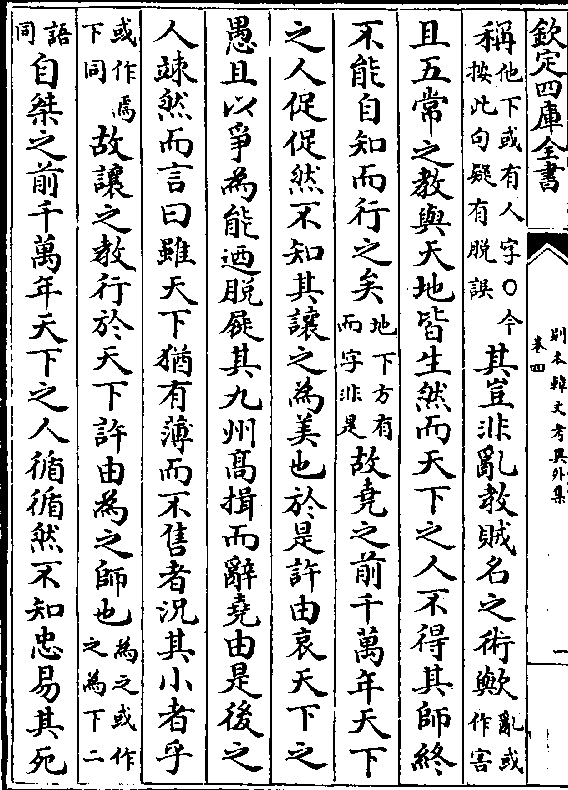 欽定四庫全書
別本韓文考異外集
卷四
一
稱他下或有人字○今按此句疑有脱誤其豈非亂教賊名之術歟亂或作害
且五常之教與天地皆生然而天下之人不得其師終
不能自知而行之矣地下方有而字非是故堯之前千萬年天下
之人促促然不知其讓之為美也於是許由哀天下之
愚且以爭為能迺脱屣其九州高揖而辭堯由是後之
人竦然而言曰雖天下猶有薄而不售者況其小者乎
或作焉下同故讓之教行於天下許由為之師也為之或作之為下二
語同自桀之前千萬年天下之人循循然不知忠易其死